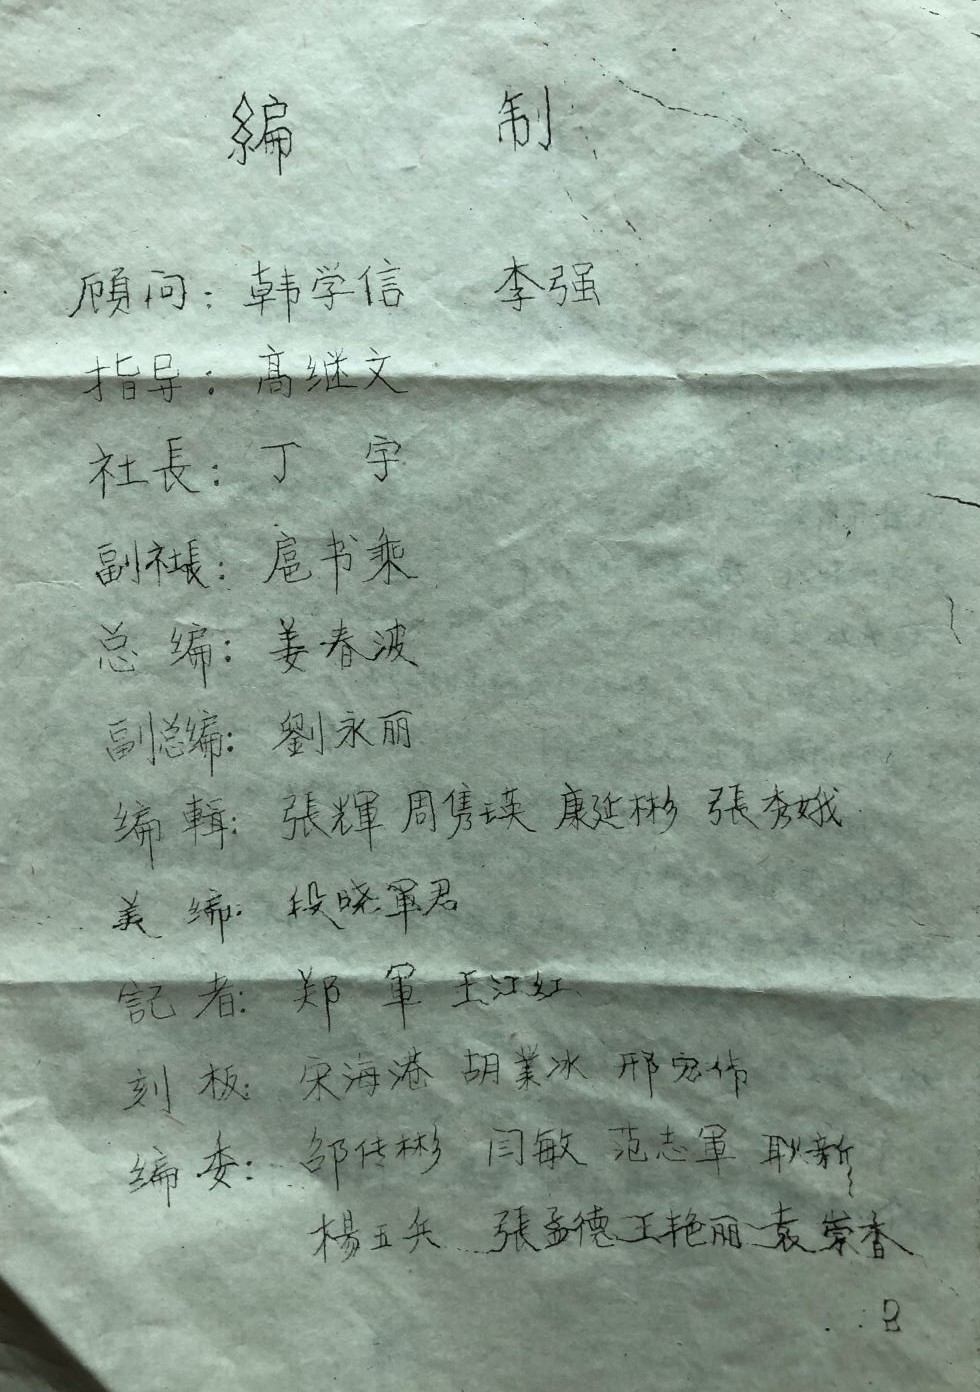 編 制
顾问：韩学信 李强
指导：高继文
社長：丁 宇
副社長：扈书乘
总 编：姜春波
副总编：劉永丽
编 輯：張輝 周隽瑛 康延彬 張秀娥
美 编：段晓軍君
記 者：郑 軍 王江红
刻 板：宋海港 胡業冰 邢宏伟
编 委：邵传彬 闫敏 范志軍 耿新
楊五兵 張孟德 王艳丽 袁崇香
2